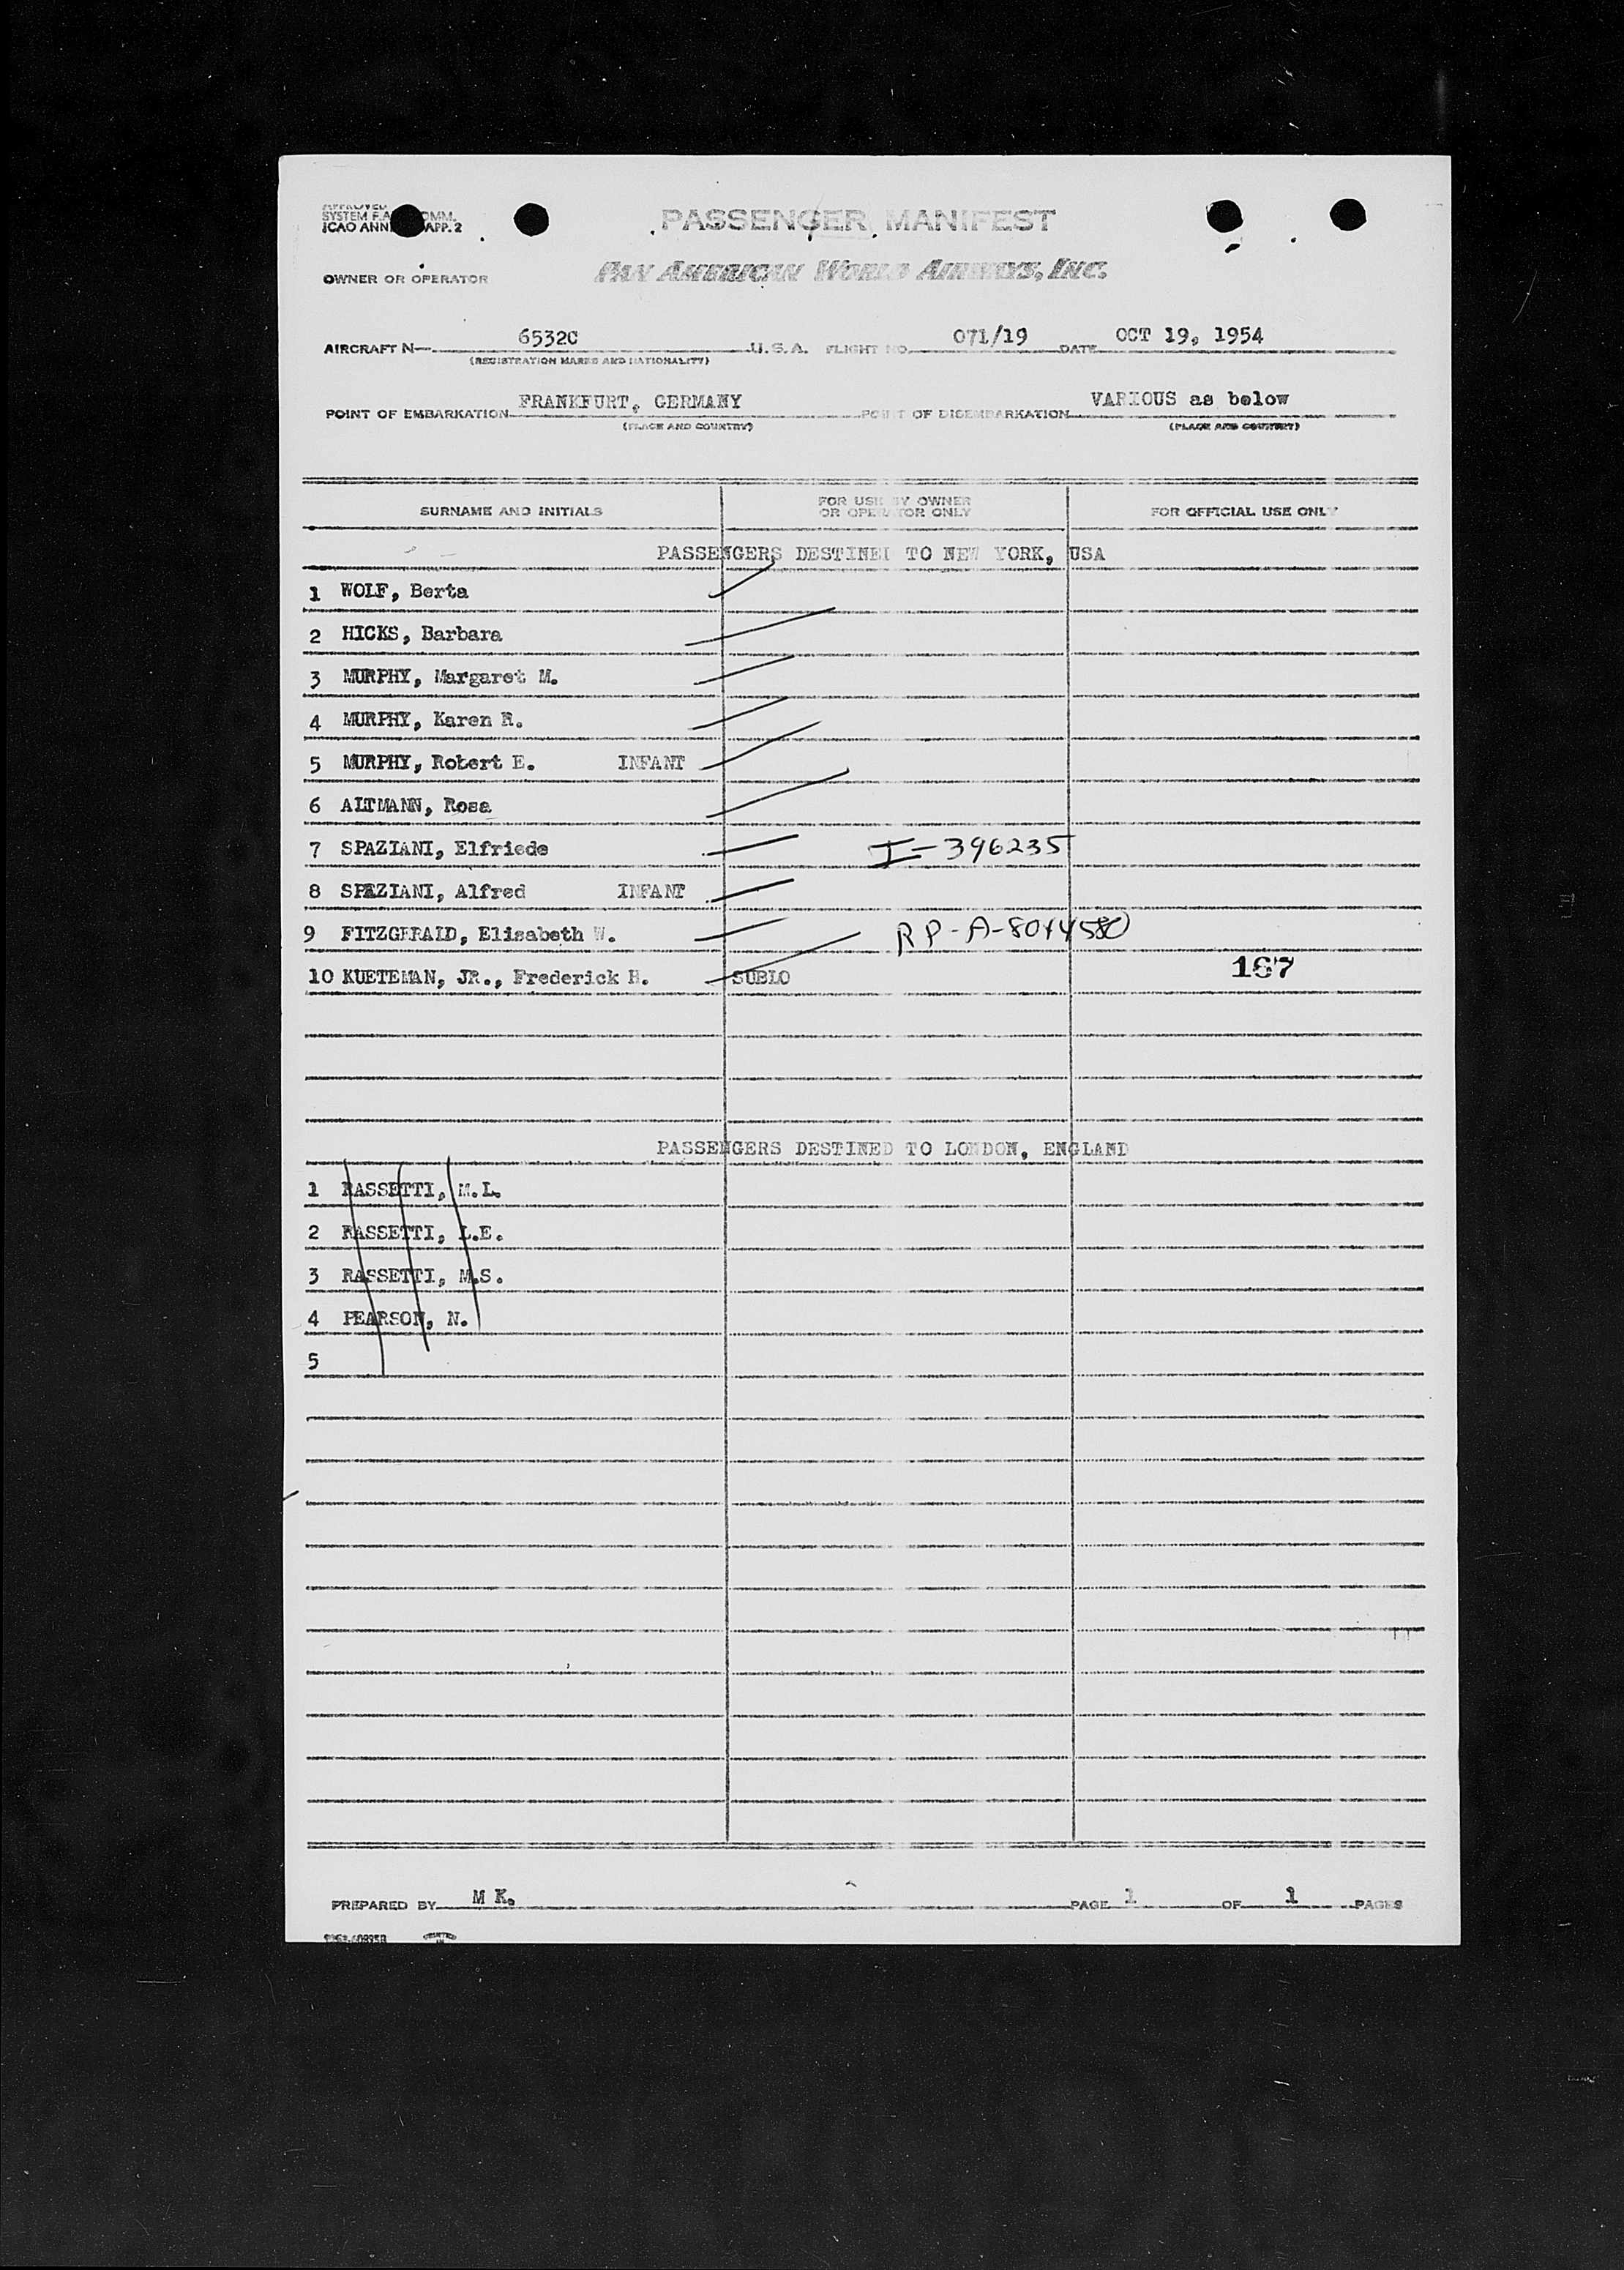 APPROVED
SYSTEM F.A. COMM.
ICAO ANN APP. 2
PASSENGER MANIFEST
OWNER OR OPERATOR PAN AMERICAN WORLD AIRWAYS, INC.
AIRCRAFT N— 6532C U.S.A. FLIGHT NO. 071/19 DATE OCT 19, 1954
(REGISTRATION MARKS AND NATIONALITY)
POINT OF EMBARKATION FRANKFURT, GERMANY POINT OF DISEMBARKATION VARIOUS as below
(PLACE AND COUNTRY) (PLACE AND COUNTRY)
SURNAME AND INITIALS FOR USE BY OWNER OR OPERATOR ONLY FOR OFFICIAL USE ONLY
PASSENGERS DESTINED TO NEW YORK, USA
1 WOLF, Berta
2 HICKS, Barbara
3 MURPHY, Margaret M.
4 MURPHY, Karen R.
5 MURPHY, Robert E. INFANT
6 ALTMANN, Rosa
7 SPAZIANI, Elfriede I-396235
8 SPAZIANI, Alfred INFANT
9 FITZGERALD, Elisabeth W. RP-A-8044580
10 KUETEMAN, JR., Frederick H. SUBLO 167
PASSENGERS DESTINED TO LONDON, ENGLAND
1 RASSETTI, M.L.
2 RASSETTI, L.E.
3 RASSETTI, M.S.
4 PEARSON, N.
5
PREPARED BY M K. PAGE 1 OF 1 PAGES